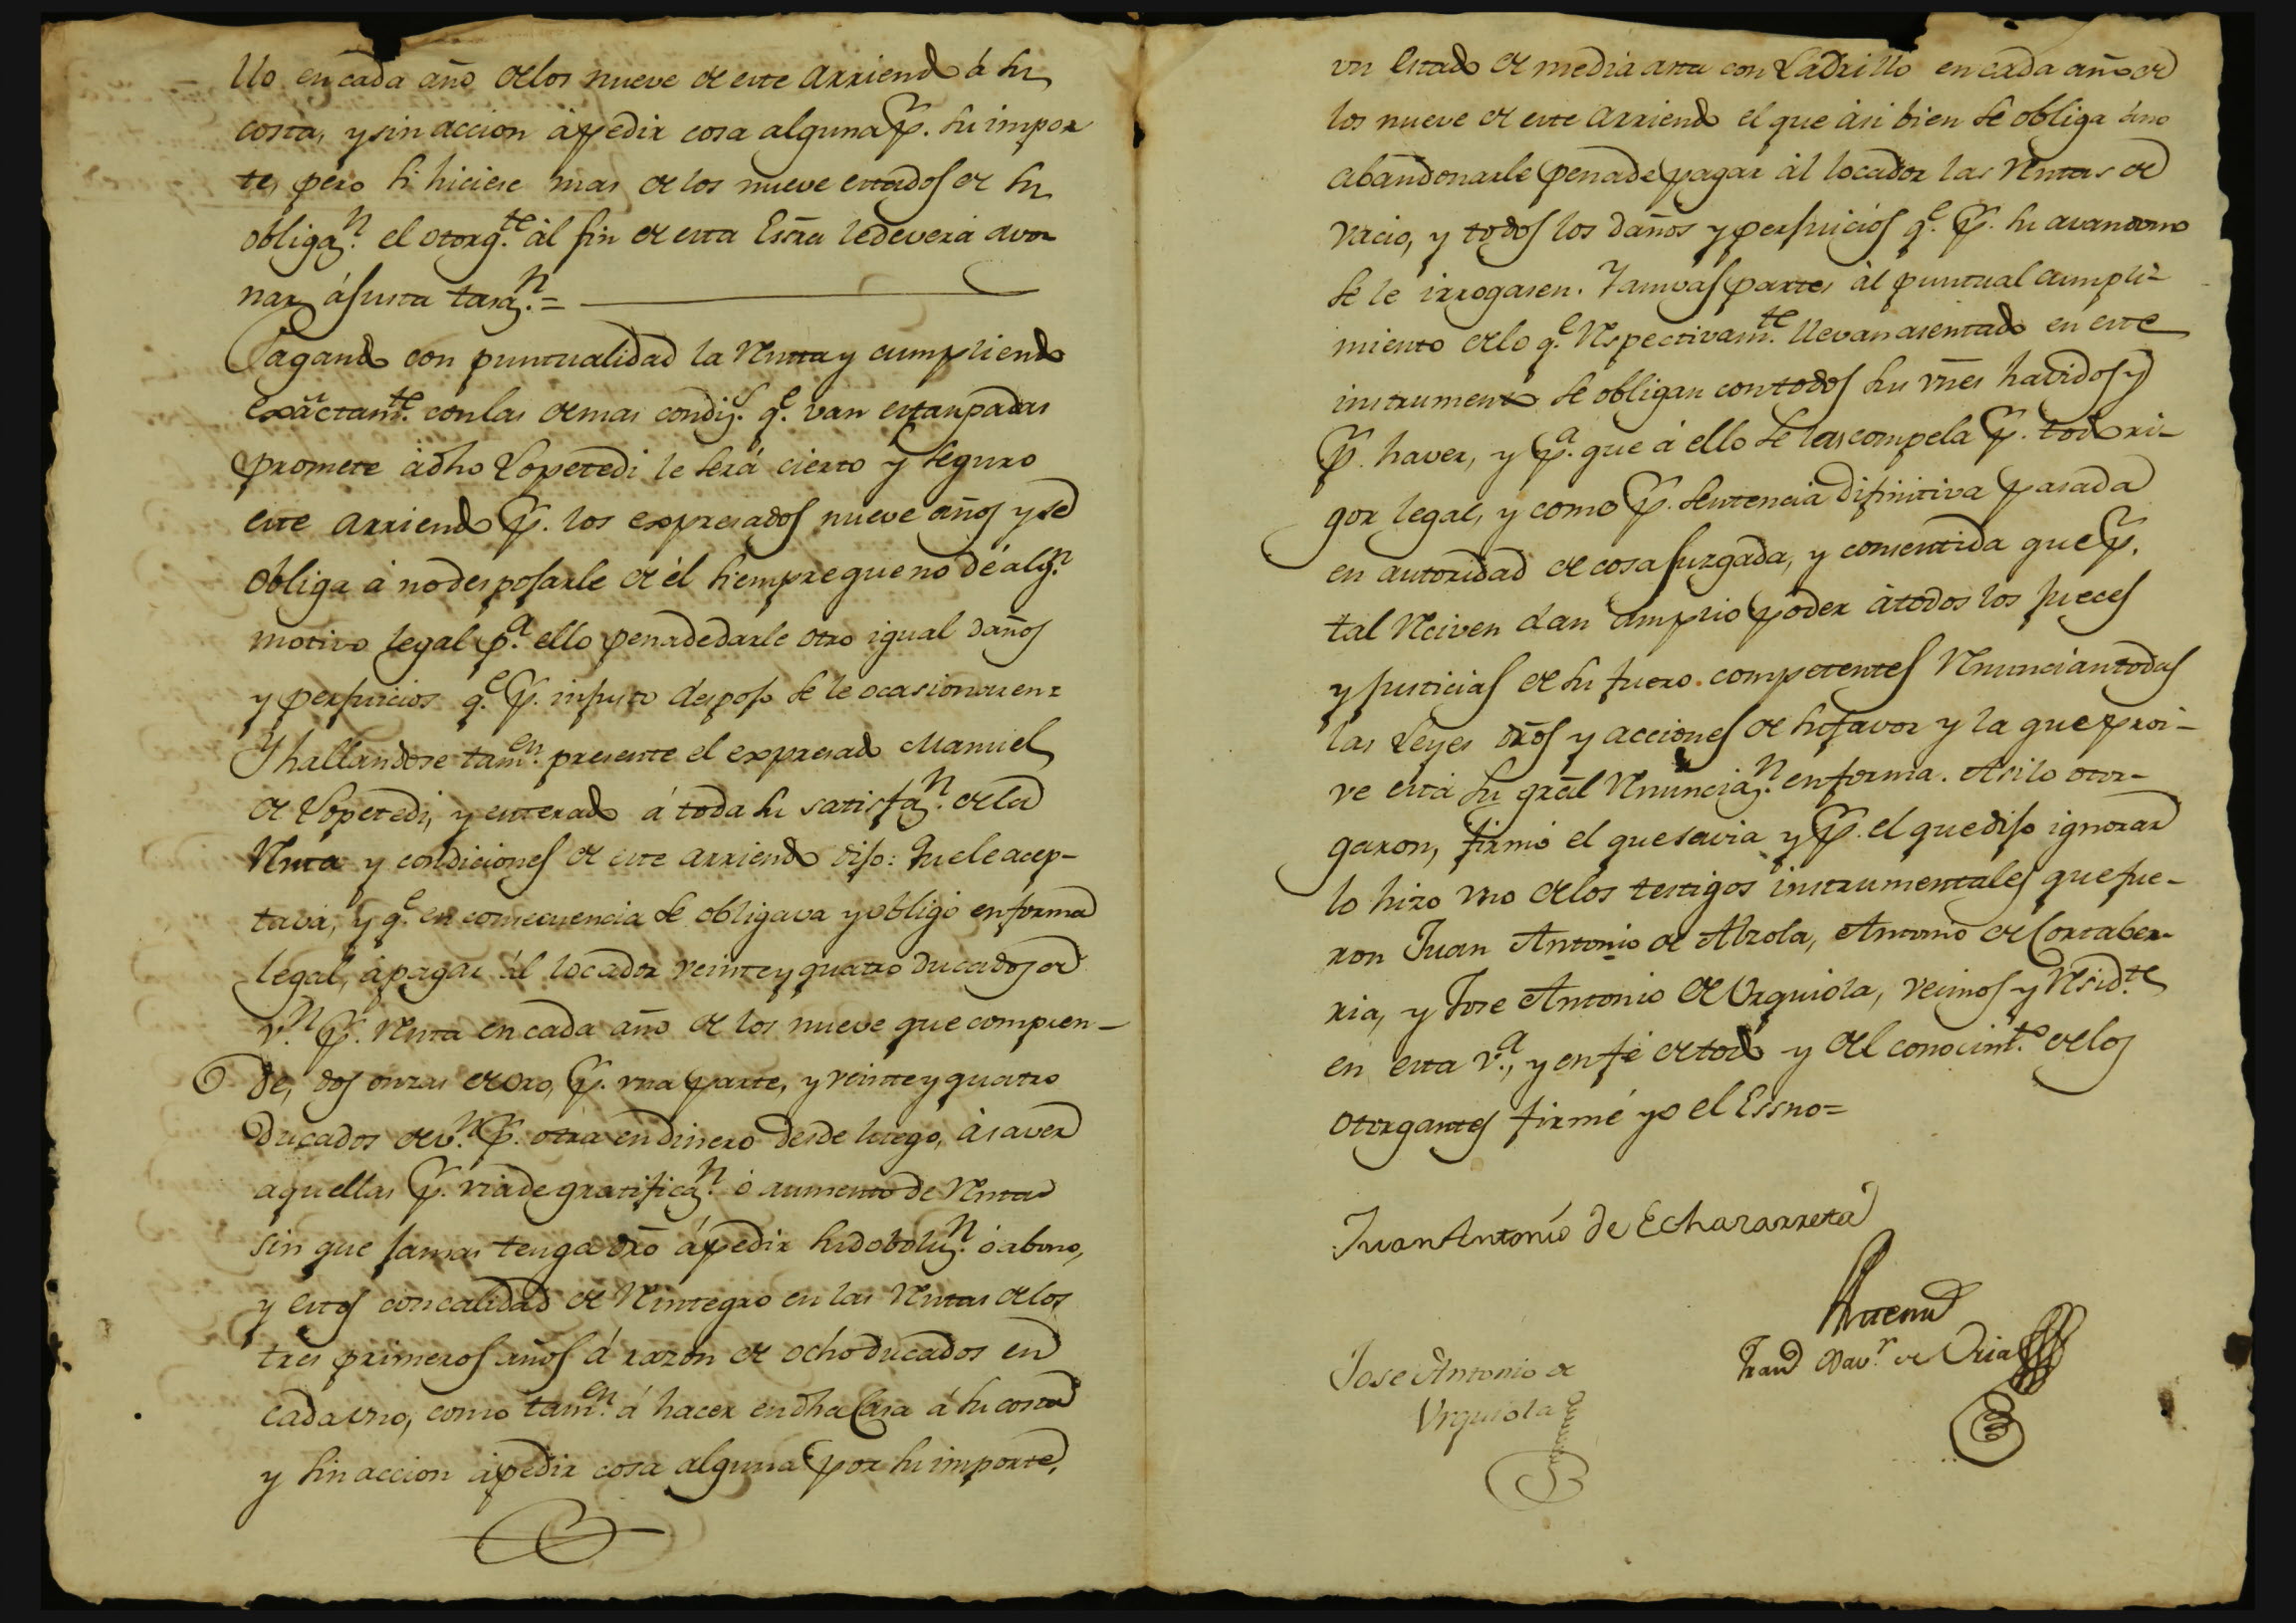 llo en cada año de los nueve de este arriendo á su
costa, y sin accion á pedir cosa alguna p.r su impor
te, pero si hiciese mas de los nueve estados de su
obligaz.n el otorg.te al fin de esta Esñra le deverá avo-
nar á justa tasaz.n =
Pagando con puntualidad la Renta y cumpliendo
exáctam.te con las demas condiz.s q.e van estanpadas
promete á dho Lopetedi le será cierto y seguro
este arriendo p.r los expresados nueve años y se
obliga á no despojarle de él siempre que no dé alg.n
motivo legal p.a ello pena de darle otro igual daños
y perjuicios q.e p.r injusto despojo se le ocasionaren =
Y hallandose tam.en presente el expresado Manuel
de Lopetedi, y enterado á toda su satisfaz.n de la
Renta y condiciones de este arriendo dijo: Que le acep-
tava, y q.e en consecuencia se obligava y obligó en forma
legal, á pagar ál locador veinte y quatro ducados de
v.n p.r Renta en cada año de los nueve que compren-
de, dos onzas de Oro, p.r una parte, y veinte y quatro
Ducados de v.n p.r otra en dinero desde luego, á saver
aquellas p.r via de gratificaz.n ó aumento de Renta
sin que jamas tenga dro á pedir su dóboluz.n ó abono,
y estos con calidad de Reintegro en las Rentas de los
tres primeros años á razon de ocho ducados en
cada uno, como tam.en á hacer en dha Casa á su costa
y sin accion á pedir cosa alguna por su importe,
un estado de media asta con Ladrillo en cada año de
los nueve de este arriendo el que ási bien se obliga á no
abandonarle pena de pagar ál locador las Rentas de
vacio, y todos los daños y perjuicios q.e p.r su avandono
se le irrogasen. Y amvas partes ál puntual cumpli-
miento de lo q.e Respectivam.te llevan asentado en este
instrumento se obligan con todos sus vñes havidos y
p.r haver, y p.a que á ello se les compela p.r todo ri-
gor legal, y como p.r sentencia difinitiva pasada
en autoridad de cosa juzgada, y consentida que p.r
tal Reciven dan amplio poder á todos los jueces
y justicias de su fuero competentes Renuncian todas
las Leyes dros y acciones de su favor y la que proi-
ve esta su grãl Renunciaz.n en forma. Asi lo otor-
garon, firmó el que savia y p.r el que dijo ignorar
lo hizo uno de los testigos instrumentales que fue-
ron Juan Antonio de Alzola, Antonio de Cortaber-
ria, y Jose Antonio de Urquiola, vecinos y Resid.te
en esta v.a, y en fé de todo y del conocim.to de los
otorgantes firmé yo el Essno =
Juan Antonio de Echazarreta
Antemi
Jose Antonio de
Fran.co Xav.r de Oria
Urquiola